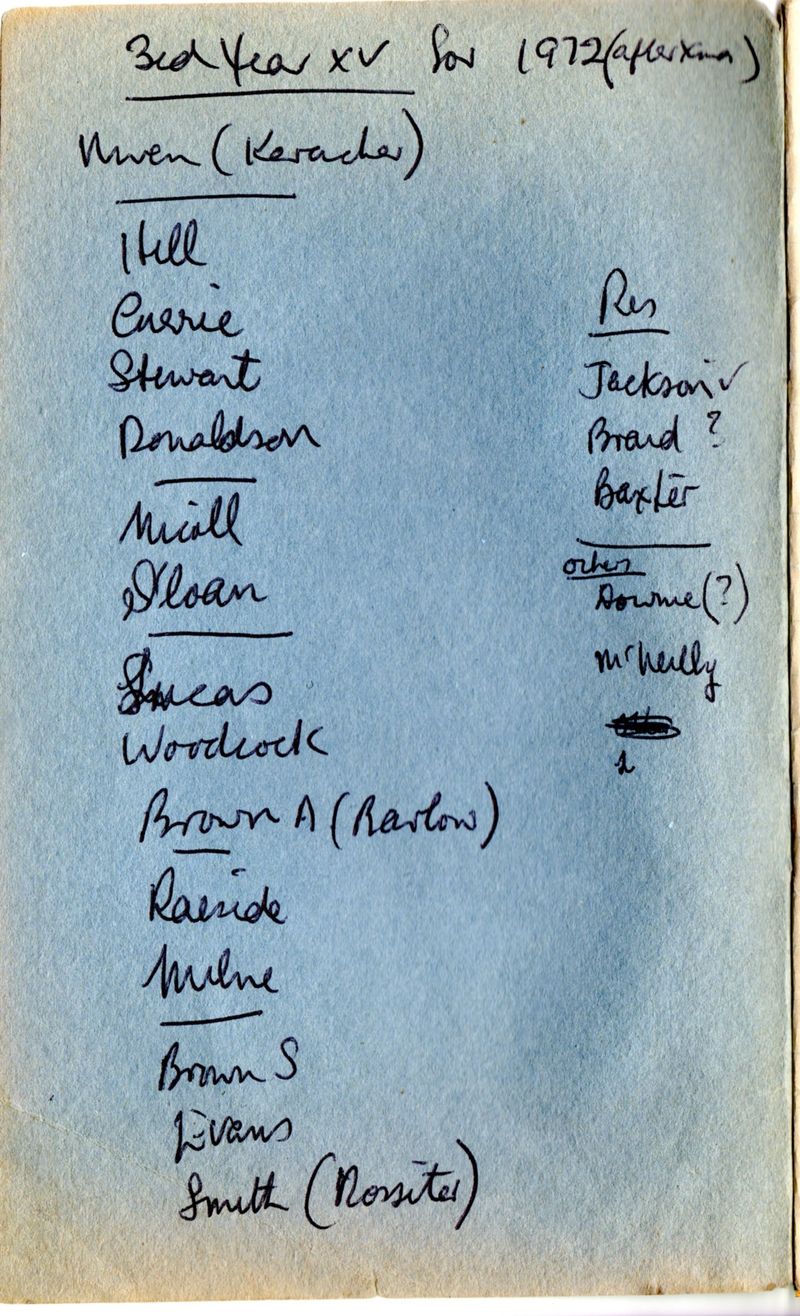 3rd Year XV for 1972 (after Xmas)
Niven (Keracher)
Hill
Currie
Stewart
Donaldson
Nicoll
Sloan
Lucas
Woodcock
Brown A (Barlow)
Raeside
Milne
Brown S
Evans
Smith (Rossiter)
Res
Jackson ✓
Braid ?
Baxter
others
Downie (?)
McNeilly